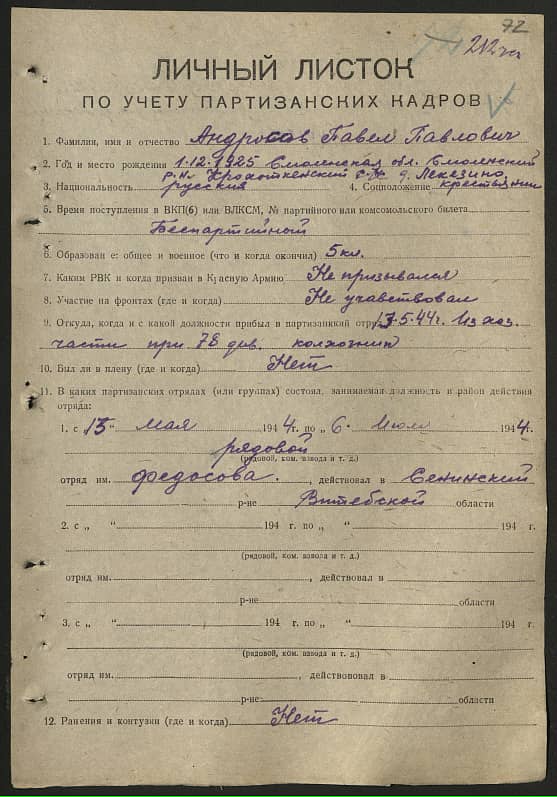 72
212
ЛИЧНЫЙ ЛИСТОК
ПО УЧЕТУ ПАРТИЗАНСКИХ КАДРОВ
1. Фамилия, имя и отчество Андросов Павел Павлович
2. Год и место рождения 1.12.1925 Смоленская обл. Смоленский
р-н Крохоткенский с-с д. Лекезино
3. Национальность русский 4. Соцположение крестьянин
5. Время поступления в ВКП(б) или ВЛКСМ, № партийного или комсомольского билета
Беспартийный
6. Образование: общее и военное (что и когда окончил) 5 кл.
7. Каким РВК и когда призван в Красную Армию Не призывался
8. Участие на фронтах (где и когда) Не учавствовал
9. Откуда, когда и с какой должности прибыл в партизанский отряд 13.5.44г. Из хоз.
части при 78 див. колхозник
10. Был ли в плену (где и когда) Нет
11. В каких партизанских отрядах (или группах) состоял, занимаемая должность и район действия
отряда:
1. с „13“ мая 1944 г. по „6“ Июля 1944 г.
рядовой
(рядовой, ком. взвода и т. д.)
отряд им. Федосова, действовал в Сенинский
р-не Витебской области
2. с „ “ 194 г. по „ “ 194 г.
(рядовой, ком. взвода и т. д.)
отряд им. , действовал в
р-не области
3. с „ “ 194 г. по „ “ 194 г.
(рядовой, ком. взвода и т. д.)
отряд им. , действововал в
р-не области
12. Ранения и контузии (где и когда) Нет